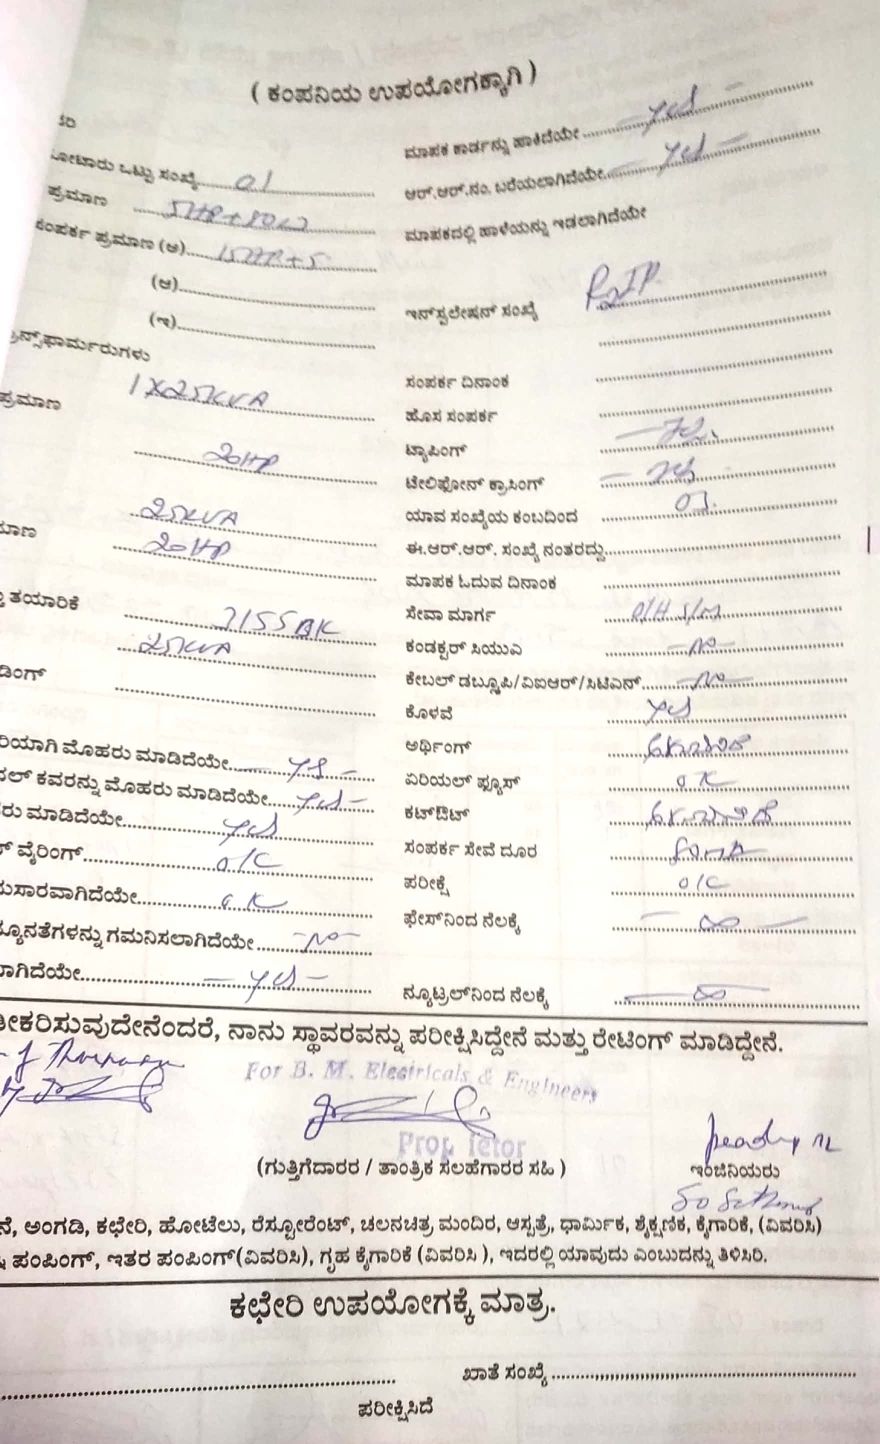 ( ಕಂಪನಿಯ ಉಪಯೋಗಕ್ಕಾಗಿ )
ಮಾಪಕ ಕಾರ್ಡನ್ನು ಹಾಕಿದೆಯೇ yes
ಮೋಟಾರು ಒಟ್ಟು ಸಂಖ್ಯೆ 01
ಆರ್.ಆರ್.ನಂ. ಬರೆಯಲಾಗಿದೆಯೇ yes
ಪ್ರಮಾಣ 5HP+80W
ಮಾಪಕದಲ್ಲಿ ಹಾಳೆಯನ್ನು ಇಡಲಾಗಿದೆಯೇ
ಸಂಪರ್ಕ ಪ್ರಮಾಣ (ಅ) 15HP+5
(ಆ)
ಇನ್‌ಸ್ಟಲೇಷನ್ ಸಂಖ್ಯೆ
(ಇ)
ನ್ಸ್‌ಫಾರ್ಮರುಗಳು
ಸಂಪರ್ಕ ದಿನಾಂಕ
ಪ್ರಮಾಣ 1X25KVA
ಹೊಸ ಸಂಪರ್ಕ
20HP
ಟ್ಯಾಪಿಂಗ್
ಟೇಲಿಫೋನ್ ಕ್ರಾಸಿಂಗ್
25KVA
ಯಾವ ಸಂಖ್ಯೆಯ ಕಂಬದಿಂದ 01
ಮಾಣ 20HP
ಈ.ಆರ್.ಆರ್. ಸಂಖ್ಯೆ ನಂತರದ್ದು
ಮಾಪಕ ಓದುವ ದಿನಾಂಕ
ತಯಾರಿಕೆ
ಸೇವಾ ಮಾರ್ಗ
25KVA
ಕಂಡಕ್ಟರ್ ಸಿಯುಎ no
ಡಿಂಗ್
ಕೇಬಲ್ ಡಬ್ಲ್ಯೂಪಿ/ವಿಐಆರ್/ಸಿಟಿಎನ್ no
ಕೊಳವೆ yes
ರಿಯಾಗಿ ಮೊಹರು ಮಾಡಿದೆಯೇ yes
ಅರ್ಥಿಂಗ್
ನಲ್ ಕವರನ್ನು ಮೊಹರು ಮಾಡಿದೆಯೇ yes
ಏರಿಯಲ್ ಫ್ಯೂಸ್ OK
ರು ಮಾಡಿದೆಯೇ yes
ಕಟ್‌ಔಟ್
ವೈರಿಂಗ್ O/C
ಸಂಪರ್ಕ ಸೇವೆ ದೂರ
ಪರೀಕ್ಷೆ O/C
ನುಸಾರವಾಗಿದೆಯೇ OK
ಫೇಸ್‌ನಿಂದ ನೆಲಕ್ಕೆ ∞
ನ್ಯೂನತೆಗಳನ್ನು ಗಮನಿಸಲಾಗಿದೆಯೇ no
ಲಾಗಿದೆಯೇ yes
ನ್ಯೂಟ್ರಲ್‌ನಿಂದ ನೆಲಕ್ಕೆ ∞
ೀಕರಿಸುವುದೇನೆಂದರೆ, ನಾನು ಸ್ಥಾವರವನ್ನು ಪರೀಕ್ಷಿಸಿದ್ದೇನೆ ಮತ್ತು ರೇಟಿಂಗ್ ಮಾಡಿದ್ದೇನೆ.
For B. M. Electricals & Engineers
(ಗುತ್ತಿಗೆದಾರರ / ತಾಂತ್ರಿಕ ಸಲಹೆಗಾರರ ಸಹಿ )
ಇಂಜಿನಿಯರು
ನೆ, ಅಂಗಡಿ, ಕಛೇರಿ, ಹೋಟೆಲು, ರೆಸ್ಟೋರೆಂಟ್, ಚಲನಚಿತ್ರ ಮಂದಿರ, ಆಸ್ಪತ್ರೆ, ಧಾರ್ಮಿಕ, ಶೈಕ್ಷಣಿಕ, ಕೈಗಾರಿಕೆ, (ವಿವರಿಸಿ)
ಪಂಪಿಂಗ್, ಇತರ ಪಂಪಿಂಗ್(ವಿವರಿಸಿ), ಗೃಹ ಕೈಗಾರಿಕೆ (ವಿವರಿಸಿ ), ಇದರಲ್ಲಿ ಯಾವುದು ಎಂಬುದನ್ನು ತಿಳಿಸಿರಿ.
ಕಛೇರಿ ಉಪಯೋಗಕ್ಕೆ ಮಾತ್ರ.
ಖಾತೆ ಸಂಖ್ಯೆ
ಪರೀಕ್ಷಿಸಿದೆ